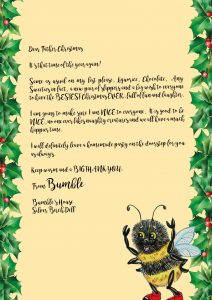 Dear Father Christmas,
It's that time of the year again!
Same as usual on my list please, liquorice, Chocolate, Any
Sweeties in fact, a new pair of slippers and a big wish to everyone
to have the BESTEST Christmas EVER, full of fun and laughter.
I am going to make sure I am NICE to everyone. It is good to be
NICE, no one ever likes naughty creatures and we all have a much
happier time.
I will definitely leave a homemade pasty on the doorstep for you
as always.
Keep warm and a BIG THANK YOU.
From Bumble
Bumble's House
Silver Birch Dell